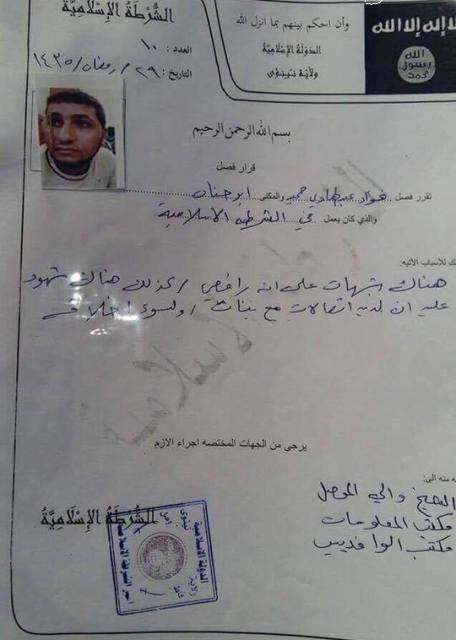 وأن احكم بينهم بما انزل الله
الدولة الإسلامية
ولاية نينوى
لا إله إلا الله
الله
رسول
محمد
الشرطة الإسلامية
العدد : ١٠
التاريخ : ٢٩ / رمضان / ١٤٣٥
بسم الله الرحمن الرحيم
قرار فصل
تقرر فصل فواز عبدالهادي حميد والمكنى ابو حنان
والذي كان يعمل في الشرطة الاسلامية
للأسباب الآتيه:
هناك شبهات على انه رافضي / وكذلك هناك شهود
عليه ان لديه اتصالات مع بنات / ولسوء اخلاق
يرجى من الجهات المختصه اجراء الازم
منه الى:
والي الموصل
مكتب المعلومات
مكتب الوافدين
الشرطة الإسلامية
الدولة الاسلامية
ولاية
نينوى